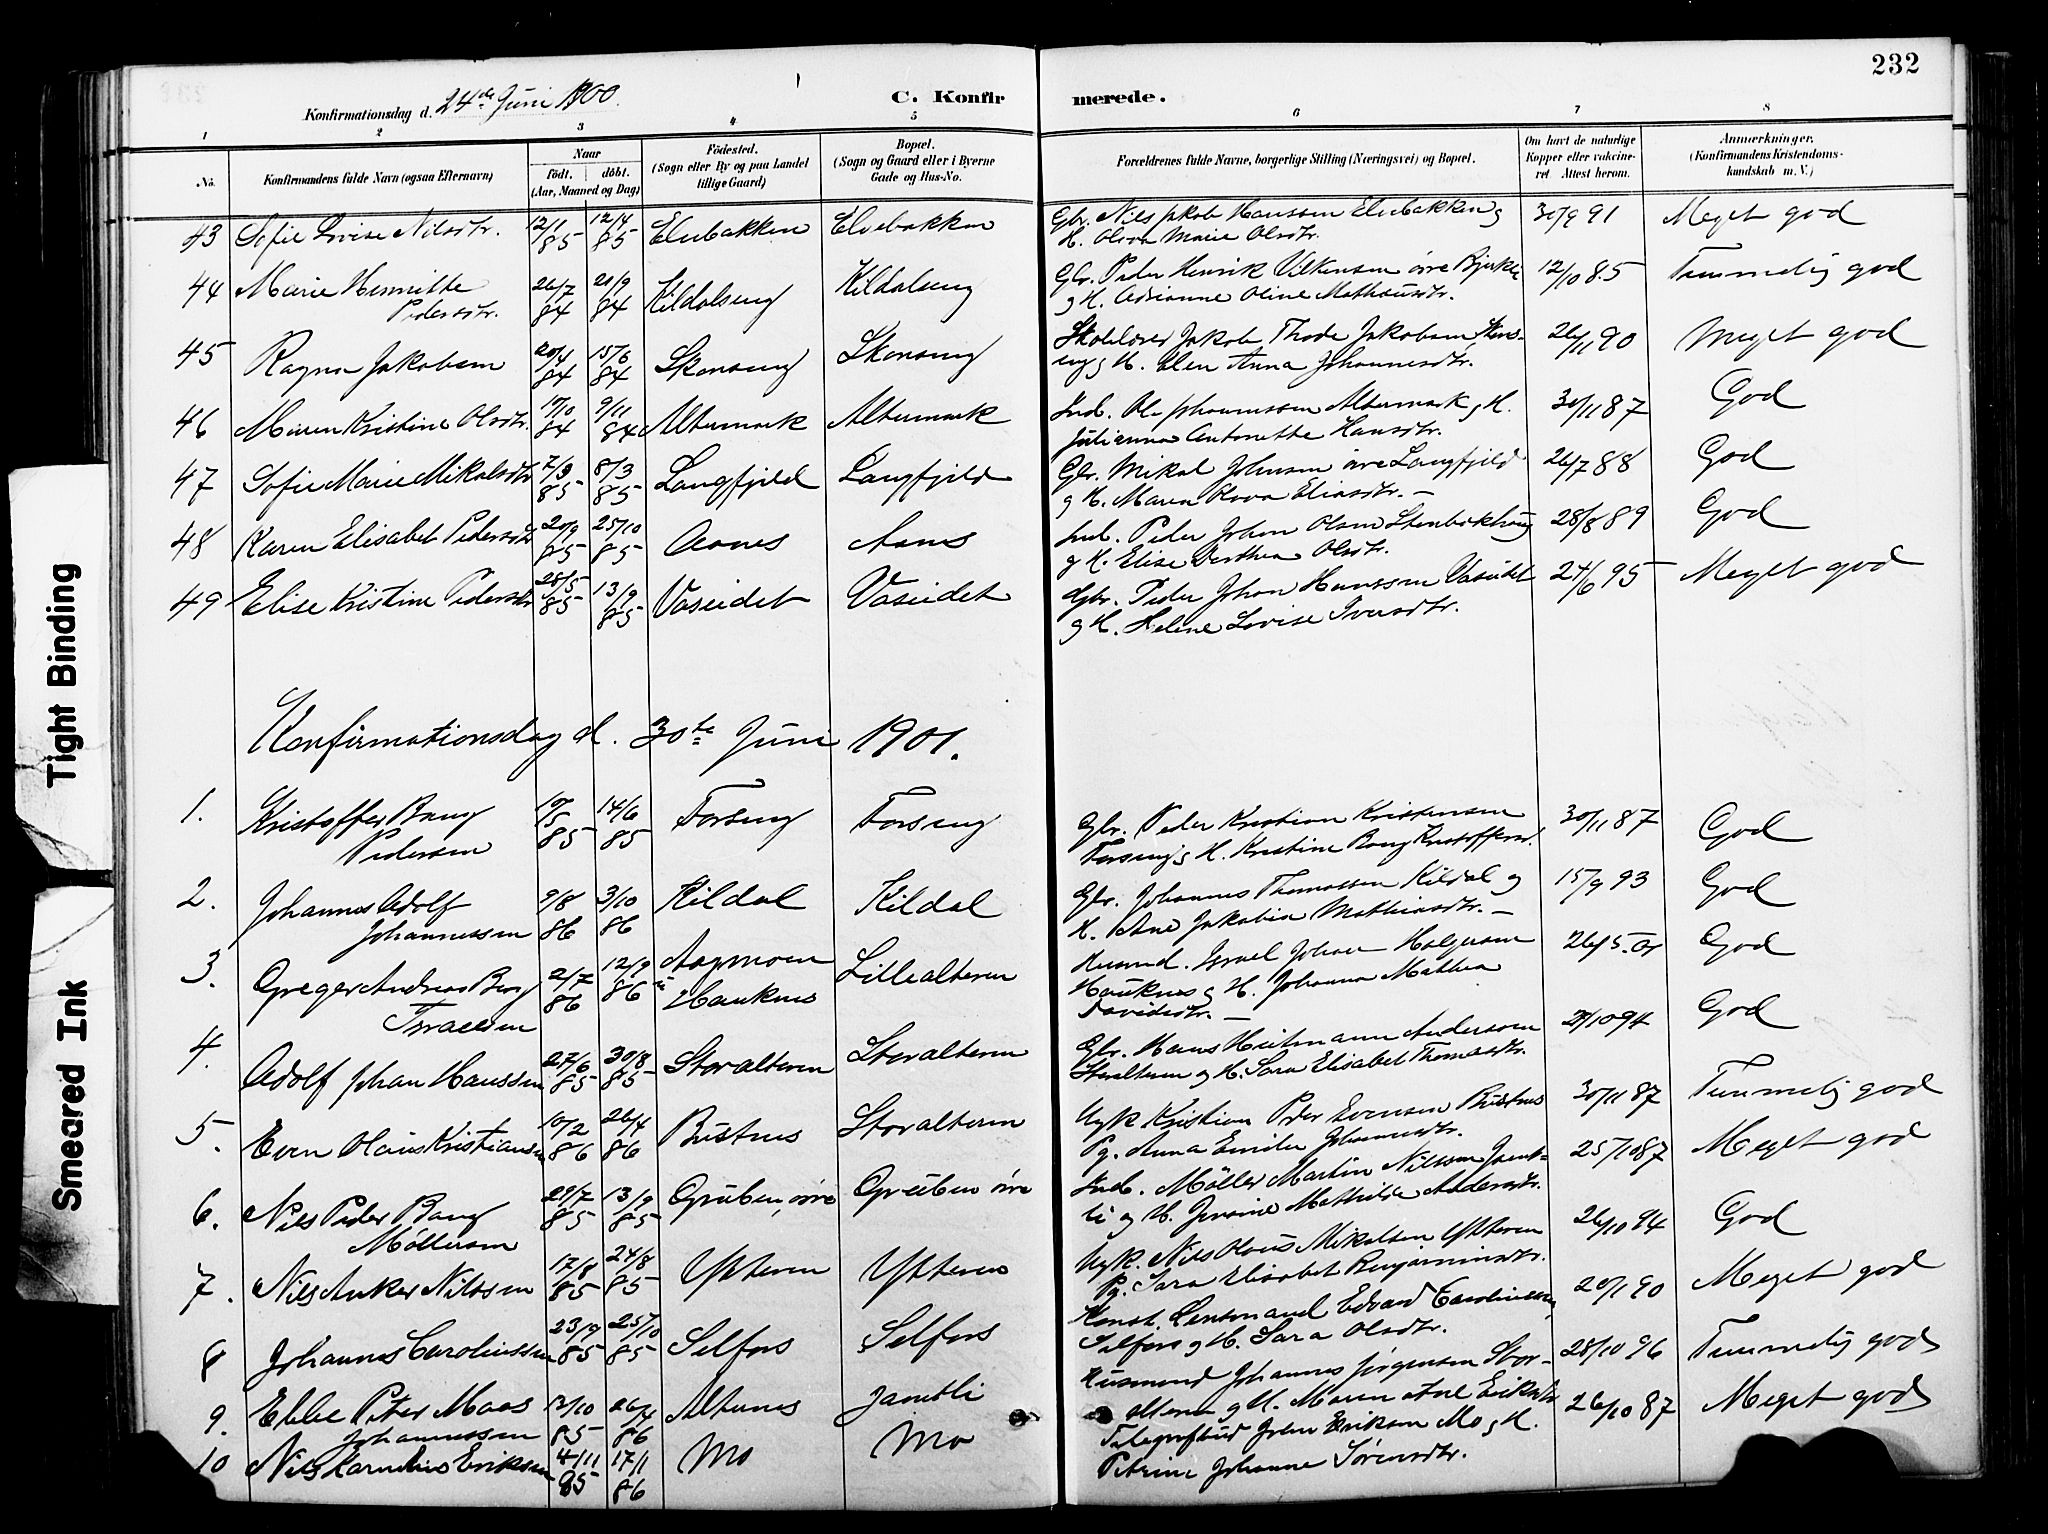 232
Konfirmationsdag d. 24de Juni 1900.
C. Konfirmerede.
1 2 3 4 5 6 7 8
No. Konfirmandens fulde Navn (ogsaa Efternavn) Naar födt. döbt. (Aar, Maaned og Dag) Födested. (Sogn eller By og paa Landet tillige Gaard) Bopæl. (Sogn og Gaard eller i Byerne Gade og Hus-No. Forældrenes fulde Navne, borgerlige Stilling (Næringsvei) og Bopæl. Om havt de naturlige Kopper eller vakcineret. Attest herom. Anmærkninger. (Konfirmandens Kristendomskundskab m. V.)
43 Sofie Lovise Nilsdtr. 12/1 85 12/4 85 Elvebakken Elvebakken Gbr. Nils Jakob Hanssen Elvebakken og H. Olava Marie Olsdtr. 30/9 91 Meget god
44 Marie Henritte Pedersdtr. 26/7 84 21/9 84 Kildaleng Kildaleng Gbr. Peder Henrik Vilkensen övre Bjerke og H. Adrianne Oline Mathæusdtr. 12/10 85 Temmelig god
45 Ragna Jakobsen 20/4 84 15/6 84 Skonseng Skonseng Skolelærer Jakob Thode Jakobsen Skonseng og H. Elen Anna Johannesdtr. 26/11 90 Meget god
46 Maren Kristine Olsdtr. 17/10 84 9/11 84 Altermark Altermark Ind. Ole Johannessen Altermark og H. Julianna Antonette Hansdtr. 30/11 87 God
47 Sofie Marie Mikalsdtr 7/3 85 8/3 85 Langfjeld Langfjeld Gbr. Mikal Johnsen övre Langfjeld og H. Maren Olava Eliasdtr. — 26/7 88 God
48 Karen Elisabet Pedersdtr 20/9 85 25/10 85 Aanes Aanes Ind. Peder Johan Olsen Stenbekhaug og H. Elise Dorthea Olsdtr. 28/8 89 God
49 Elise Kristine Pedersdtr 28/5 85 13/9 85 Vaseidet Vaseidet Gbr. Peder Johan Hanssen Vaseidet og H. Helene Lovise Iversdtr. 24/6 95 Meget god
Konfirmationsdag d. 30te Juni 1901.
1. Kristoffer Bang Pedersen 10/5 85 14/6 85 Forseng Forseng Gbr. Peder Kristian Kristensen Forseng og H. Kristine Bang Kristoffersd. 30/11 87 God
2. Johannes Adolf Johannessen 9/8 86 3/10 86 Kildal Kildal Gbr. Johannes Thomassen Kildal og H. Ane Jakobia Mathiasdtr. — 15/9 93 God
3. Greger Andreas Berg Israelsen 2/7 86 12/9 86 Aagmoen u Hauknes Lillealteren Husmd. Israel Johan Holgersen Hauknes og H. Johanna Mathea Davidsdtr. — 26/5 God
4. Adolf Johan Hanssen 27/6 85 30/8 85 Storalteren Storalteren Gbr. Hans Heitmann Anderssen Storalteren og H. Sara Elisabet Thomasdtr. 27/10 94 God
5. Even Olaus Kristiansen 10/2 86 26/4 86 Bustnes Storalteren Ugk Kristian Peder Evensen Bustnes Pg. Anna Emilie Johannesdtr. 30/11 87 Temmelig god
6. Nils Peder Bang Möllersen 29/7 85 13/9 85 Gruben, övre Gruben övre Ind. Möller Martin Nilssen Jamtli og H. Jensine Mathilde Andersdtr. 25/10 87 Meget god
7. Nils Anker Nilssen 17/8 85 24/8 85 Ytteren Ytteren Ugk. Nils Olaus Mikalsen Ytteren Pg. Sara Elisabet Benjaminsdtr. 26/10 94 God
8 Johannes Caroliussen 23/9 85 25/10 85 Selfors Selfors Konst. Lensmand Edvard Caroliussen Selfors og H. Sara Olsdtr. 20/1 90 Meget god
9. Ebbe Peter Maas Johannessen 12/10 85 26/4 86 Alternes Jamtli Husmand Johannes Jörgensen Storalteren og H. Maren Erikadtr 28/10 96 Temmelig god
10 Nils Kornelius Eriksen 4/11 85 17/1 86 Mo Mo Telegrafbud John Eriksen Mo og H. Petrine Johanne Sörensdtr. 26/10 87 Meget god
Tight Binding
Smeared Ink